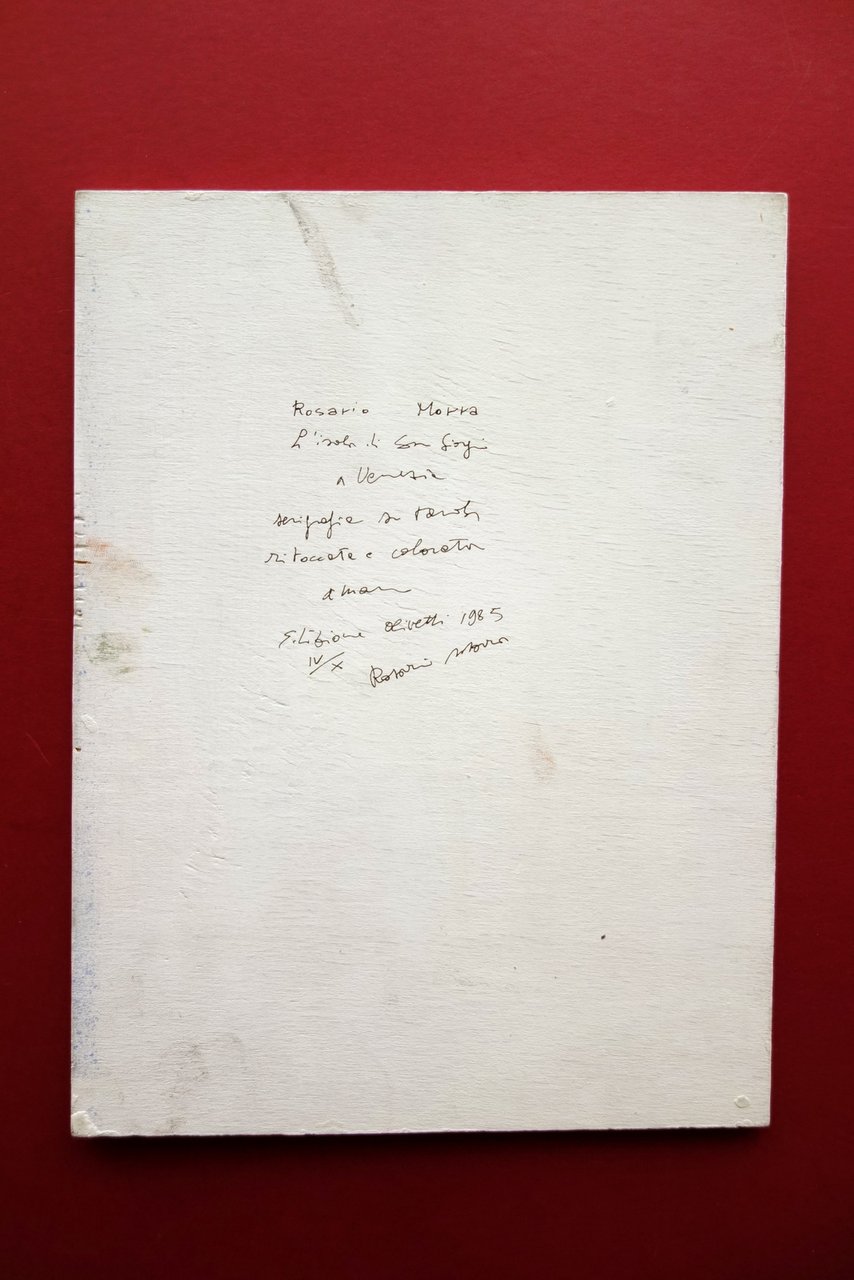 Rosario Morra
L'isola di San Giorgio
a Venezia
serigrafia su tavola
ritoccata e colorata
a mano
Edizione Olivetti 1985
IV/X Rosario Morra